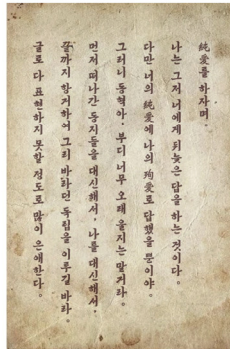 純愛를 하자며.
나는 그저 너에게 뒤늦은 답을 하는 것이다.
다만 너의 純愛에 나의 殉愛로 답했을 뿐이야.
그러니 동혁아, 부디 너무 오래 울지는 말거라.
먼저 떠나간 동지들을 대신해서, 나를 대신해서,
끝까지 항거하여 그리 바라던 독립을 이루길 바라.
글로 다 표현하지 못할 정도로 많이 은애한다.